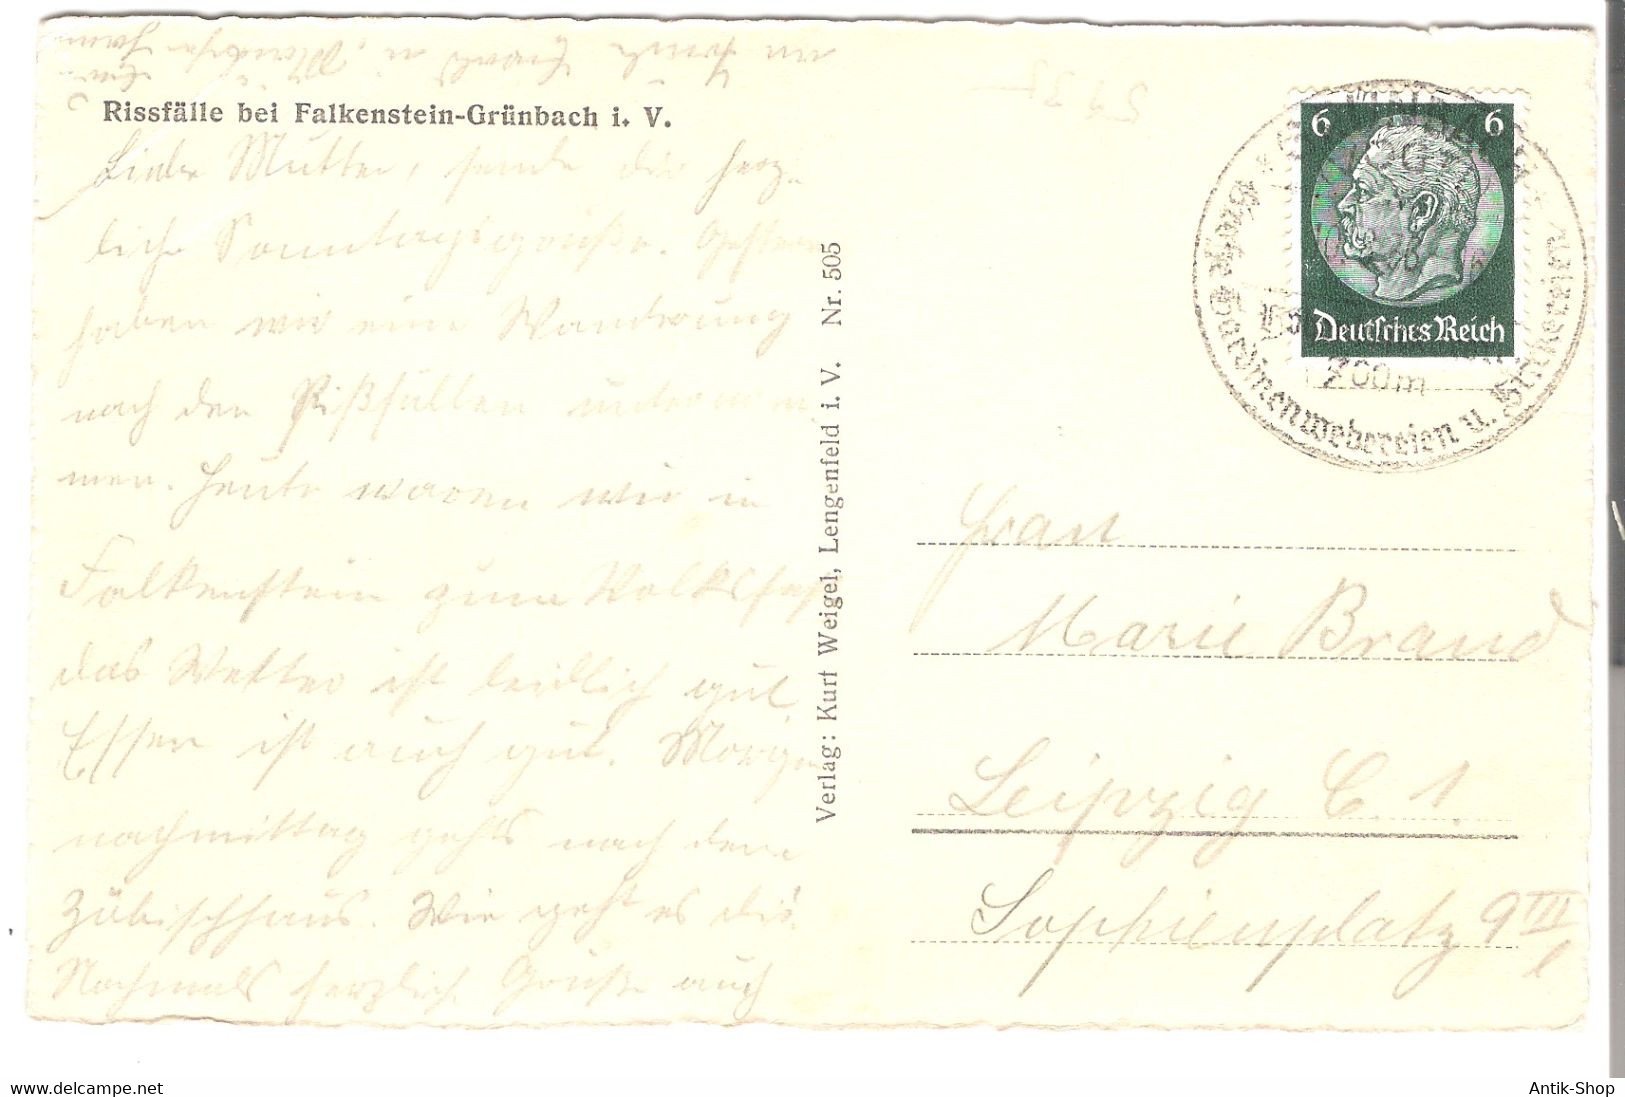 Rissfälle bei Falkenstein-Grünbach i. V.
Liebe Mutter, sende dir herz-
liche Sonntagsgrüße. Gestern
haben wir eine Wanderung
nach den Rißfällen unternom
men. Heute waren wir in
Falkenstein zum Volksfest
das Wetter ist leidlich gut
Essen ist auch gut. Morgen
nachmittag gehts nach dem
Zöbischhaus. Wie geht es dir.
Nochmals herzliche Grüße auch
an
Verlag: Kurt Weigel, Lengenfeld i. V. Nr. 505
6 6
Deutsches Reich
700m
Gardinenwebereien u.
Frau
Marie Brand
Leipzig C 1.
Sophienplatz 9 III
l
www.delcampe.net
Antik-Shop